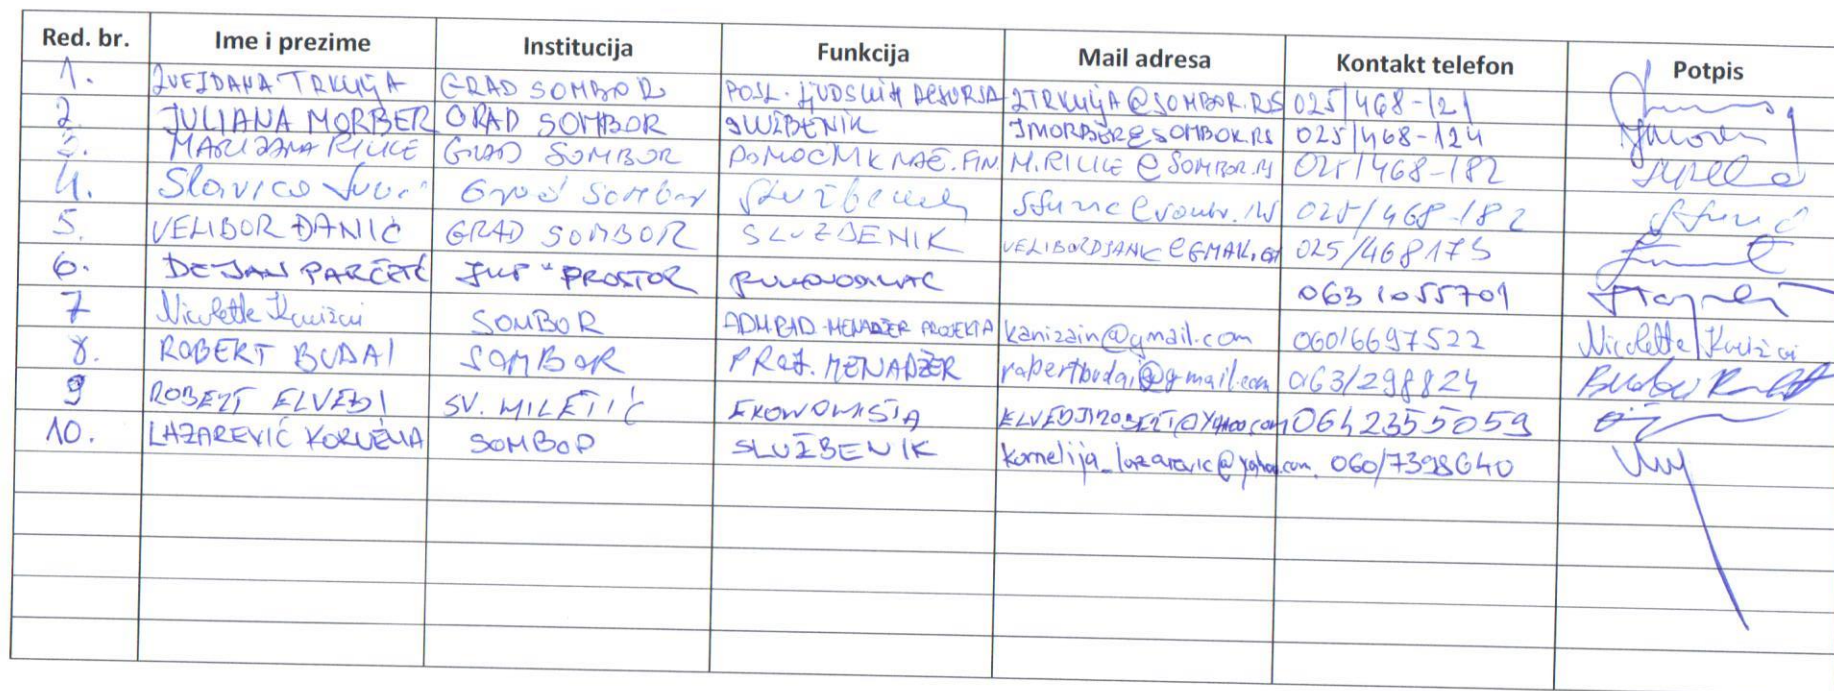 Red. br. Ime i prezime Institucija Funkcija Mail adresa Kontakt telefon Potpis
1. ZVEZDANA TRKULJA GRAD SOMBOR POSL. LJUDSKIH RESURSA ZTRKULJA@SOMBOR.RS 025/468-121
2. JULIANA MORBER GRAD SOMBOR SLUŽBENIK JMORBER@SOMBOR.RS 025/468-124
3. GRAD SOMBOR POMOĆNIK NAČ. FIN. 025/468-182
4. Slavica Grad Sombor Službenik 025/468-182
5. VELIBOR ĐANIĆ GRAD SOMBOR SLUŽBENIK 025/468173
6. DEJAN PARČETIĆ JUP "PROSTOR 063 1055701
7 Nicolette SOMBOR MENADŽER PROJEKTA kanizain@gmail.com 060/6697522 Nicolette
8. ROBERT BUDAI SOMBOR PROJ. MENADŽER robertbudai@gmail.com 063/298824
9 ROBERT ELVEDI SV. MILETIĆ EKONOMISTA 0642355059
10. LAZAREVIĆ SOMBOR SLUŽBENIK kornelija_lazarevic@yahoo.com 060/7398640